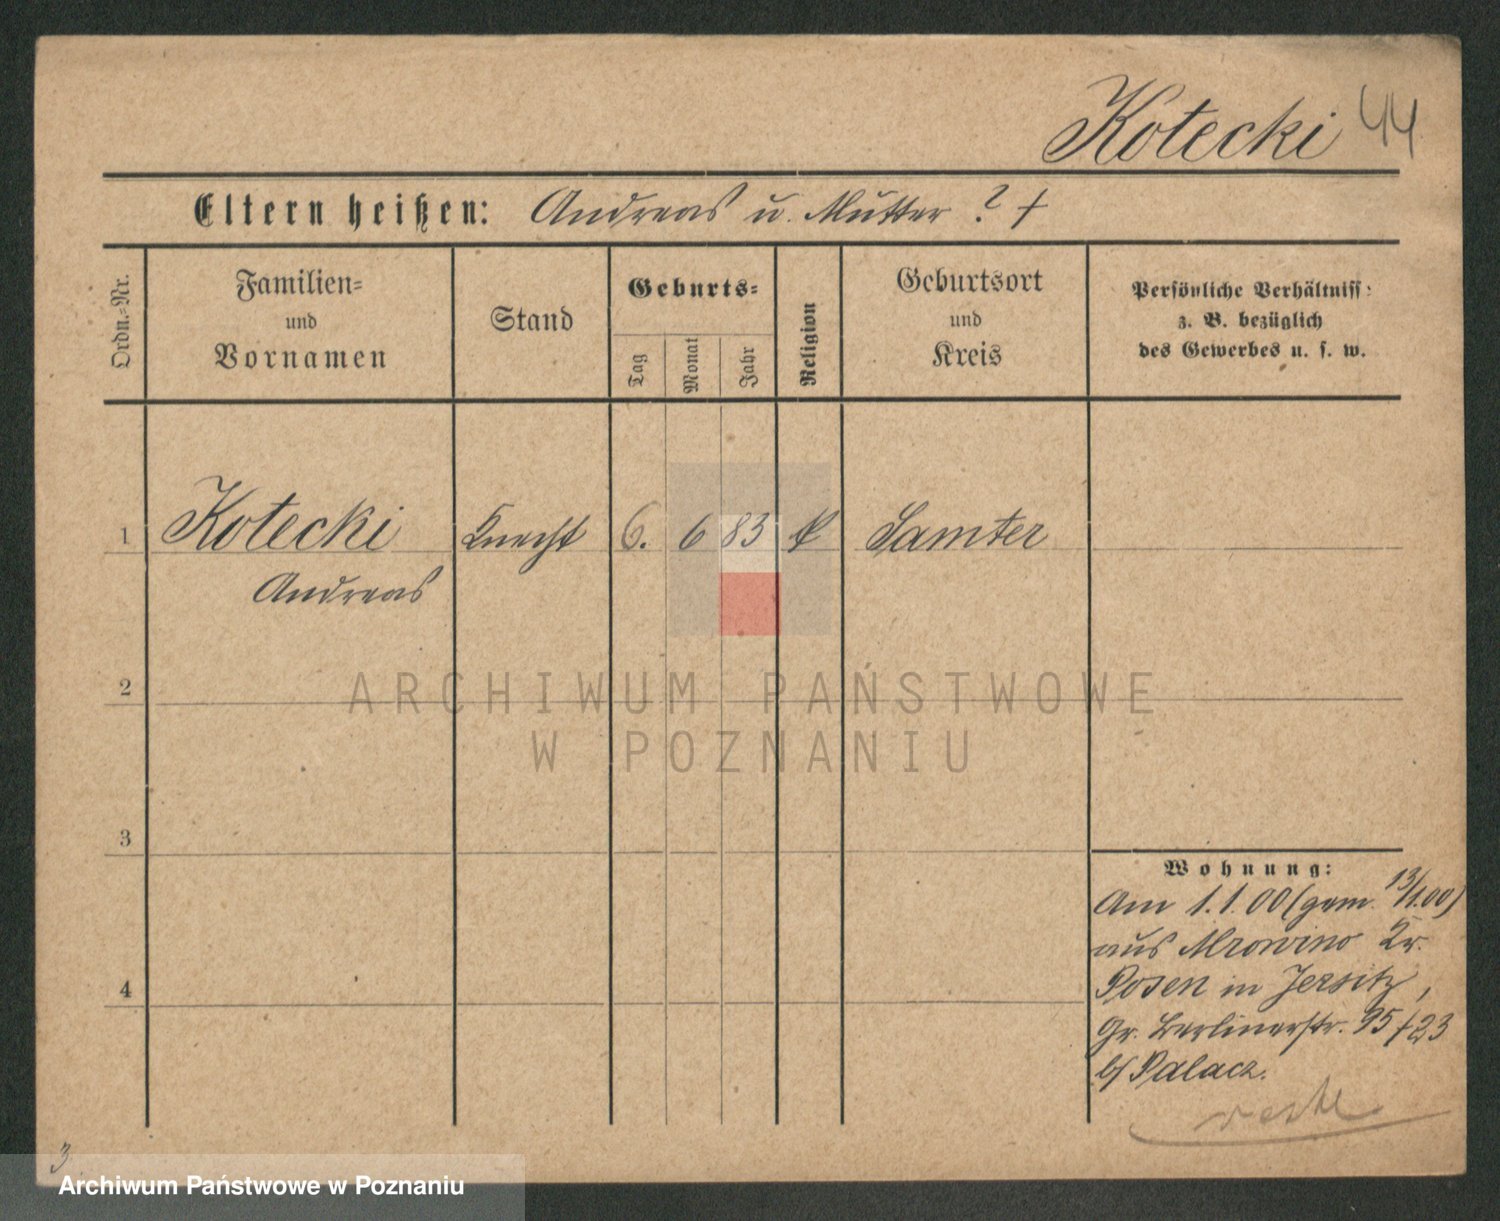 Kotecki 44
Eltern heißen: Andreas u. Mutter ? +
Ordn.=Nr.
Familien=
und
Vornamen
Stand
Geburts=
Tag
Monat
Jahr
Religion
Geburtsort
und
Kreis
Persönliche Verhältniss:
z. B. bezüglich
des Gewerbes u. s. w.
1 Kotecki Knecht 6. 6 83 k Samter
Andreas
2
3
4
Wohnung:
Am 1.1.00 (gem. 13/1.00)
aus Mrowino Kr.
Posen in Jersitz,
Gr. Berlinerstr. 95/23
b/ Palacz.
3
ARCHIWUM PAŃSTWOWE
W POZNANIU
Archiwum Państwowe w Poznaniu